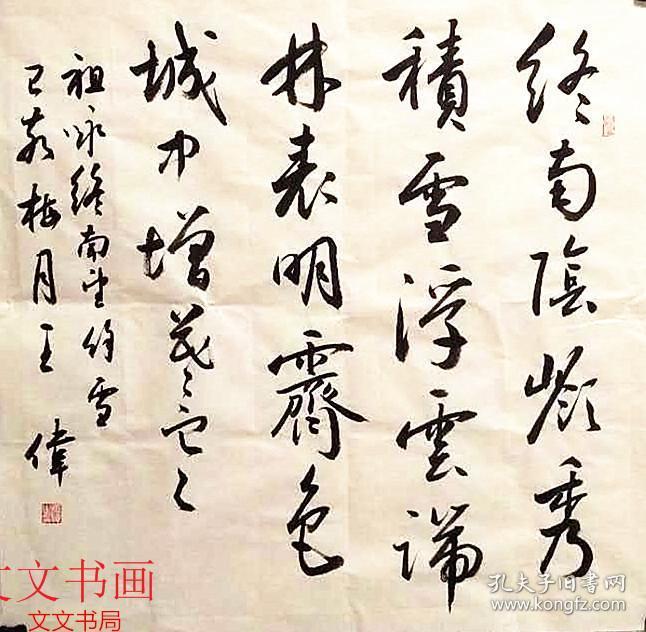 終南陰嶺秀
積雪浮雲端
林表明霽色
城中增暮寒
祖咏終南望餘雪
己亥梅月王偉
文文书画
文文书局
孔夫子旧书网
www.kongfz.com